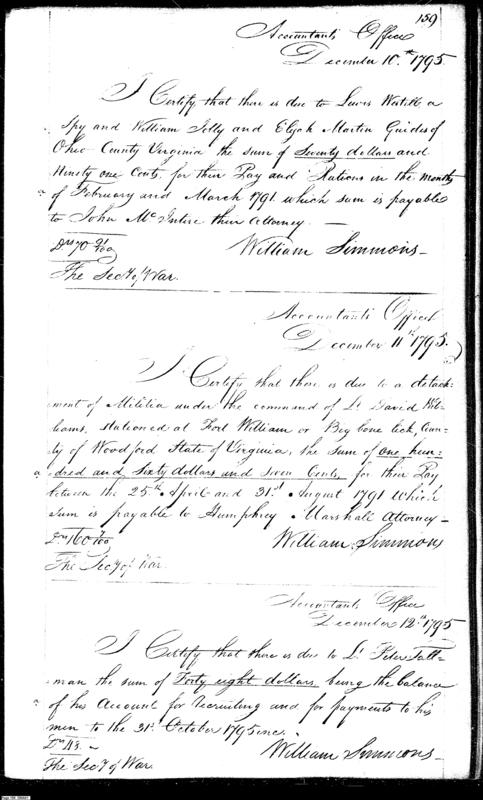 159
Accountants Office
December 10th 1795
I Certify that there is due to Lewis a
Spy and William Jolly and Elijah Martin Guides of
Ohio County Virginia the sum of Seventy dollars and
Ninety one Cents, for their Pay and Rations in the months
of February and March 1791 which sum is payable
to John McIntire their Attorney. —
Drs 70 91/100 William Simmons —
The Secy of War.
Accountants Office
December 11th 1795.
I Certify that there is due to a detach-
ment of Militia under the command of Lt David Wil-
liams, stationed at Fort William or Big bone lick, Coun-
ty of Woodford State of Virginia, the sum of one hun-
dred and Sixty dollars and Seven Cents, for their Pay
between the 25th April and 31st August 1791 which
sum is payable to Humphrey Marshall Attorney —
Drs 160 7/100 William Simmons
The Secy of War.
Accountants Office
December 12th 1795
I Certify that there is due to Lt Peter Tall-
man the sum of Forty eight dollars, being the balance
of his Account for Recruiting and for payments to his
men to the 31st October 1795 inc. —
Drs 48. —
William Simmons —
The Secy of War.